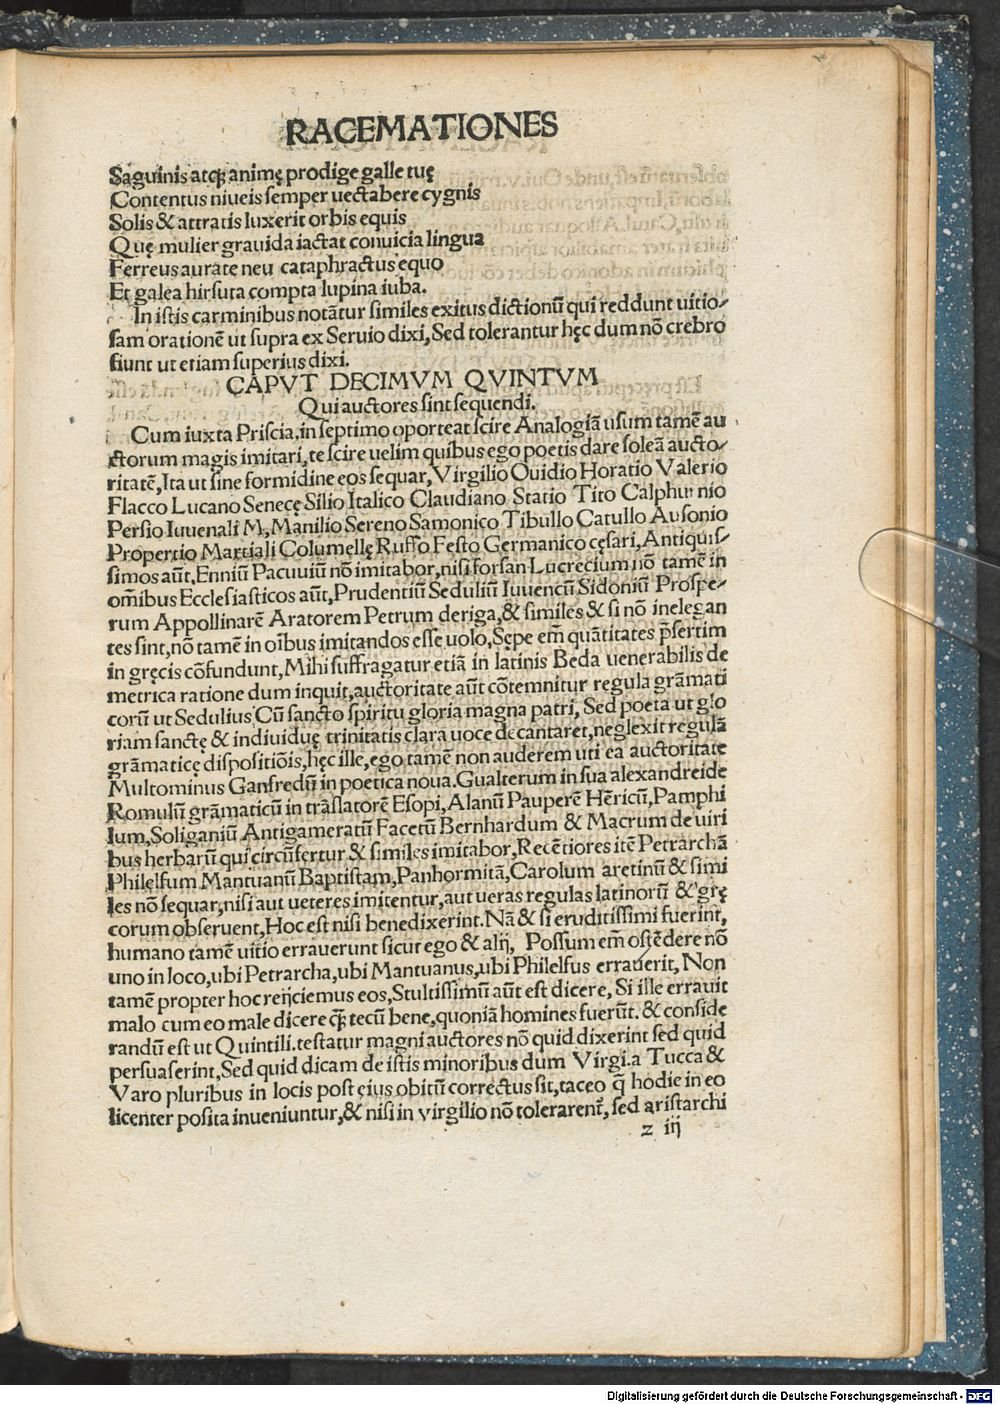 RACEMATIONES
Saguinis atqꝫ animę prodige galle tuę
Contentus niueis semper uectabere cygnis
Solis & attratis luxerit orbis equis
Quę mulier grauida iactat conuicia lingua
Ferreus aurate neu cataphractus equo
Et galea hirsuta compta lupina iuba.
In istis carminibus notãtur similes exitus dictionũ qui reddunt uitio-
sam orationẽ ut supra ex Seruio dixi, Sed tolerantur hęc dum nõ crebro
fiunt ut etiam superius dixi.
CAPVT DECIMVM QVINTVM
Qui auctores sint sequendi.
Cum iuxta Priscia, in septimo oporteat scire Analogiã usum tamẽ au
ctorum magis imitari, te scire uelim quibus ego poetis dare soleã aucto-
ritatẽ, Ita ut sine formidine eos sequar, Virgilio Ouidio Horatio Valerio
Flacco Lucano Senecę Silio Italico Claudiano Statio Tito Calphurnio
Persio Iuuenali M, Manilio Sereno Samonico Tibullo Catullo Ausonio
Propertio Martiali Columellę Ruffo Festo Germanico cęsari, Antiquis-
simos aũt, Enniũ Pacuuiũ nõ imitabor, nisi forsan Lucrecium nõ tamẽ in
om̃ibus Ecclesiasticos aũt, Prudentiũ Seduliũ Iuuencũ Sidoniũ Prospe-
rum Appollinarẽ Aratorem Petrum deriga, & similes & si nõ inelegan
tes sint, nõ tamẽ in oĩbus imitandos esse uolo, Sępe em̃ quãtitates p̃sertim
in gręcis cõfundunt, Mihi suffragatur etiã in latinis Beda uenerabilis de
metrica ratione dum inquit, auctoritate aũt cõtemnitur regula grãmati
corũ ut Sedulius Cũ sancto spiritu gloria magna patri, Sed poeta ut glo
riam sanctę & indiuiduę trinitatis clara uoce decantaret, neglexit regulã
grãmaticę dispositiõis, hęc ille, ego tamẽ non auderem uti ea auctoritate
Multominus Ganfredũ in poetica noua. Gualterum in sua alexandreide
Romulũ grãmaticũ in trãslatorẽ Esopi, Alanũ Pauperẽ Hẽricũ, Pamphi
lum, Soliganiũ Antigameratũ Facetũ Bernhardum & Macrum de uiri
bus herbarũ qui circũfertur & similes imitabor, Recẽtiores itẽ Petrarchã
Philelfum Mantuanũ Baptistam, Panhormitã, Carolum aretinũ & simi
les nõ sequar, nisi aut ueteres imitentur, aut ueras regulas latinorũ & grę
corum obseruent, Hoc est nisi benedixerint. Nã & si eruditissimi fuerint,
humano tamẽ uitio errauerunt sicut ego & alij, Possum em̃ ostẽdere nõ
uno in loco, ubi Petrarcha, ubi Mantuanus, ubi Philelfus errauerit, Non
tamẽ propter hoc reijciemus eos, Stultissimũ aũt est dicere, Si ille errauit
malo cum eo male dicere q̃ꝫ tecũ bene, quoniã homines fuerũt. & conside
randũ est ut Quintili. testatur magni auctores nõ quid dixerint sed quid
persuaserint, Sed quid dicam de istis minoribus dum Virgi. a Tucca &
Varo pluribus in locis post eius obitũ correctus sit, taceo q̃ hodie in eo
licenter posita inueniuntur, & nisi in virgilio nõ tolerarent̃, sed aristarchi
z iij
Digitalisierung gefördert durch die Deutsche Forschungsgemeinschaft - DFG